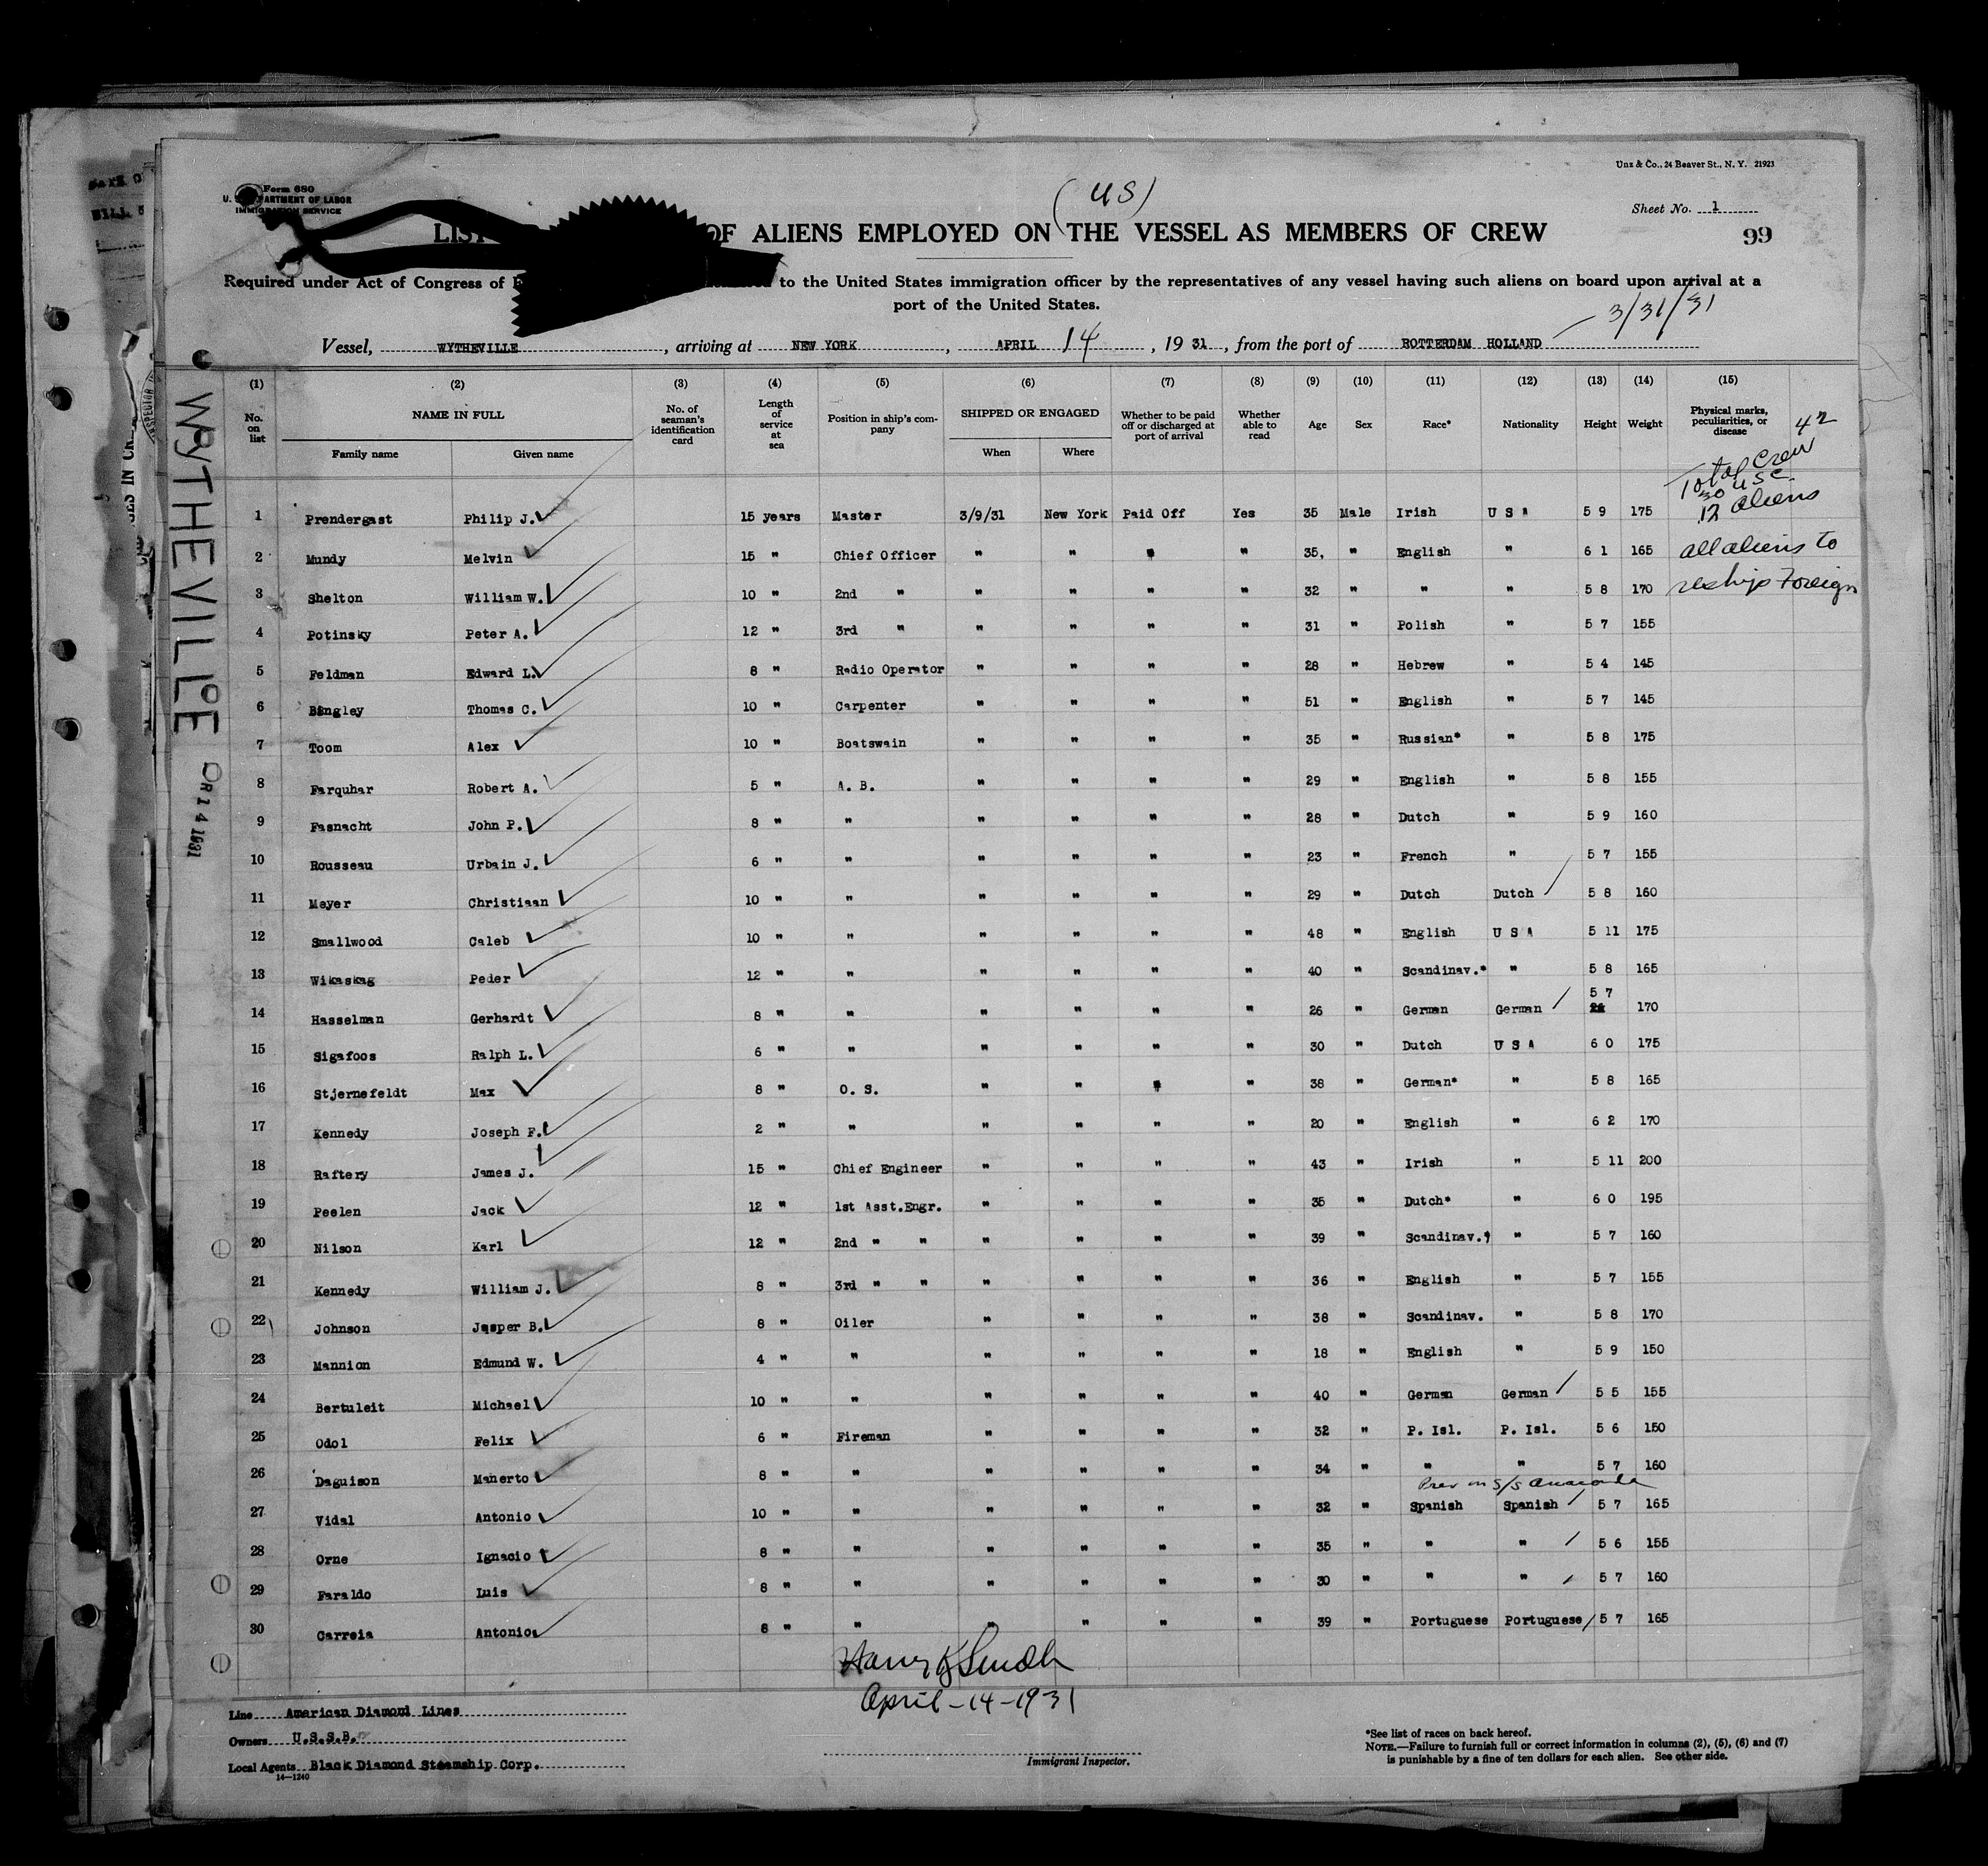 Unz & Co., 24 Beaver St., N. Y. 21923
Form 680
U. S. DEPARTMENT OF LABOR
IMMIGRATION SERVICE
(US)
Sheet No. 1
99
LIST OF ALIENS EMPLOYED ON THE VESSEL AS MEMBERS OF CREW
Required under Act of Congress of to the United States immigration officer by the representatives of any vessel having such aliens on board upon arrival at a
port of the United States.
3/31/31
Vessel, WYTHEVILLE, arriving at NEW YORK, APRIL 14, 19 31, from the port of ROTTERDAM HOLLAND
WYTHEVILLE
14 1931
(1) (2) (3) (4) (5) (6) (7) (8) (9) (10) (11) (12) (13) (14) (15)
No. on list NAME IN FULL Family name Given name No. of seaman's identification card Length of service at sea Position in ship's company SHIPPED OR ENGAGED When Where Whether to be paid off or discharged at port of arrival Whether able to read Age Sex Race* Nationality Height Weight Physical marks, peculiarities, or disease
42
Total Crew
30 USC
12 aliens
all aliens to
reship Foreign
1 Prendergast Philip J. 15 years Master 3/9/31 New York Paid Off Yes 35 Male Irish U S A 5 9 175
2 Mundy Melvin 15 " Chief Officer " " " " 35, " English " 6 1 165
3 Shelton William W. 10 " 2nd " " " " " 32 " " " 5 8 170
4 Potinsky Peter A. 12 " 3rd " " " " " 31 " Polish " 5 7 155
5 Feldman Edward L. 8 " Radio Operator " " " " 28 " Hebrew " 5 4 145
6 Bingley Thomas C. 10 " Carpenter " " " " 51 " English " 5 7 145
7 Toom Alex 10 " Boatswain " " " " 35 " Russian* " 5 8 175
8 Farquhar Robert A. 5 " A. B. " " " " 29 " English " 5 8 155
9 Fasnacht John P. 8 " " " " " " 28 " Dutch " 5 9 160
10 Rousseau Urbain J. 6 " " " " " " 23 " French " 5 7 155
11 Meyer Christiaan 10 " " " " " " 29 " Dutch Dutch 5 8 160
12 Smallwood Caleb 10 " " " " " " 48 " English U S A 5 11 175
13 Wikaskag Peder 12 " " " " " " 40 " Scandinav.* " 5 8 165
14 Hasselman Gerhardt 8 " " " " " " 26 " German German 5 7 170
15 Sigafoos Ralph L. 6 " " " " " " 30 " Dutch U S A 6 0 175
16 Stjernefeldt Max 8 " O. S. " " " " 38 " German* " 5 8 165
17 Kennedy Joseph F. 2 " " " " " " 20 " English " 6 2 170
18 Raftery James J. 15 " Chief Engineer " " " " 43 " Irish " 5 11 200
19 Peelen Jack 12 " 1st Asst.Engr. " " " " 35 " Dutch* " 6 0 195
20 Nilson Karl 12 " 2nd " " " " " " 39 " Scandinav.* " 5 7 160
21 Kennedy William J. 8 " 3rd " " " " " " 36 " English " 5 7 155
22 Johnson Jasper B. 8 " Oiler " " " " 38 " Scandinav. " 5 8 170
23 Mannion Edmund W. 4 " " " " " " 18 " English " 5 9 150
24 Bertuleit Michael 10 " " " " " " 40 " German German 5 5 155
25 Odol Felix 6 " Fireman " " " " 32 " P. Isl. P. Isl. 5 6 150
26 Daguison Manerto 8 " " " " " " 34 " " " 5 7 160
Prev on S/S Anaconda
27 Vidal Antonio 10 " " " " " " 32 " Spanish Spanish 5 7 165
28 Orne Ignacio 8 " " " " " " 35 " " " 5 6 155
29 Faraldo Luis 8 " " " " " " 30 " " " 5 7 160
30 Carreia Antonio 8 " " " " " " 39 " Portuguese Portuguese 5 7 165
April-14-1931
Line American Diamond Lines
Owners U.S.S.B.
Local Agents Black Diamond Steamship Corp.
14-1240
Immigrant Inspector.
*See list of races on back hereof.
NOTE.—Failure to furnish full or correct information in columns (2), (5), (6) and (7)
is punishable by a fine of ten dollars for each alien. See other side.